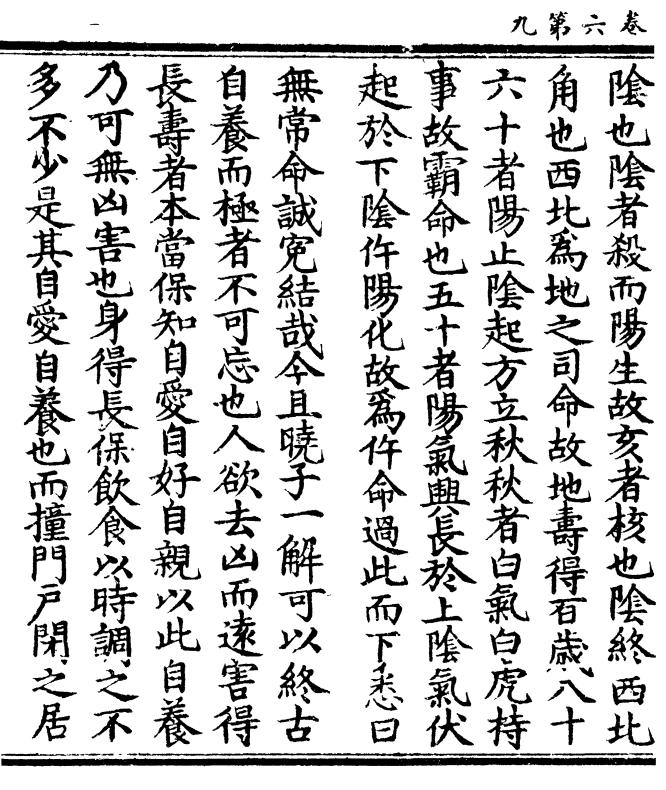 卷六第九
陰也陰者殺而陽生故亥者核也陰終西北
角也西北爲地之司命故地壽得百歲八十
六十者陽止陰起方立秋秋者白氣白虎持
事故霸命也五十者陽氣興長於上陰氣伏
起於下陰仵陽化故爲仵命過此而下悉曰
無常命誠寃結哉今且曉子一解可以終古
自養而極者不可忘也人欲去凶而遠害得
長壽者本當保知自愛自好自親以此自養
乃可無凶害也身得長保飲食以時調之不
多不少是其自愛自養也而撞門戶閑之居